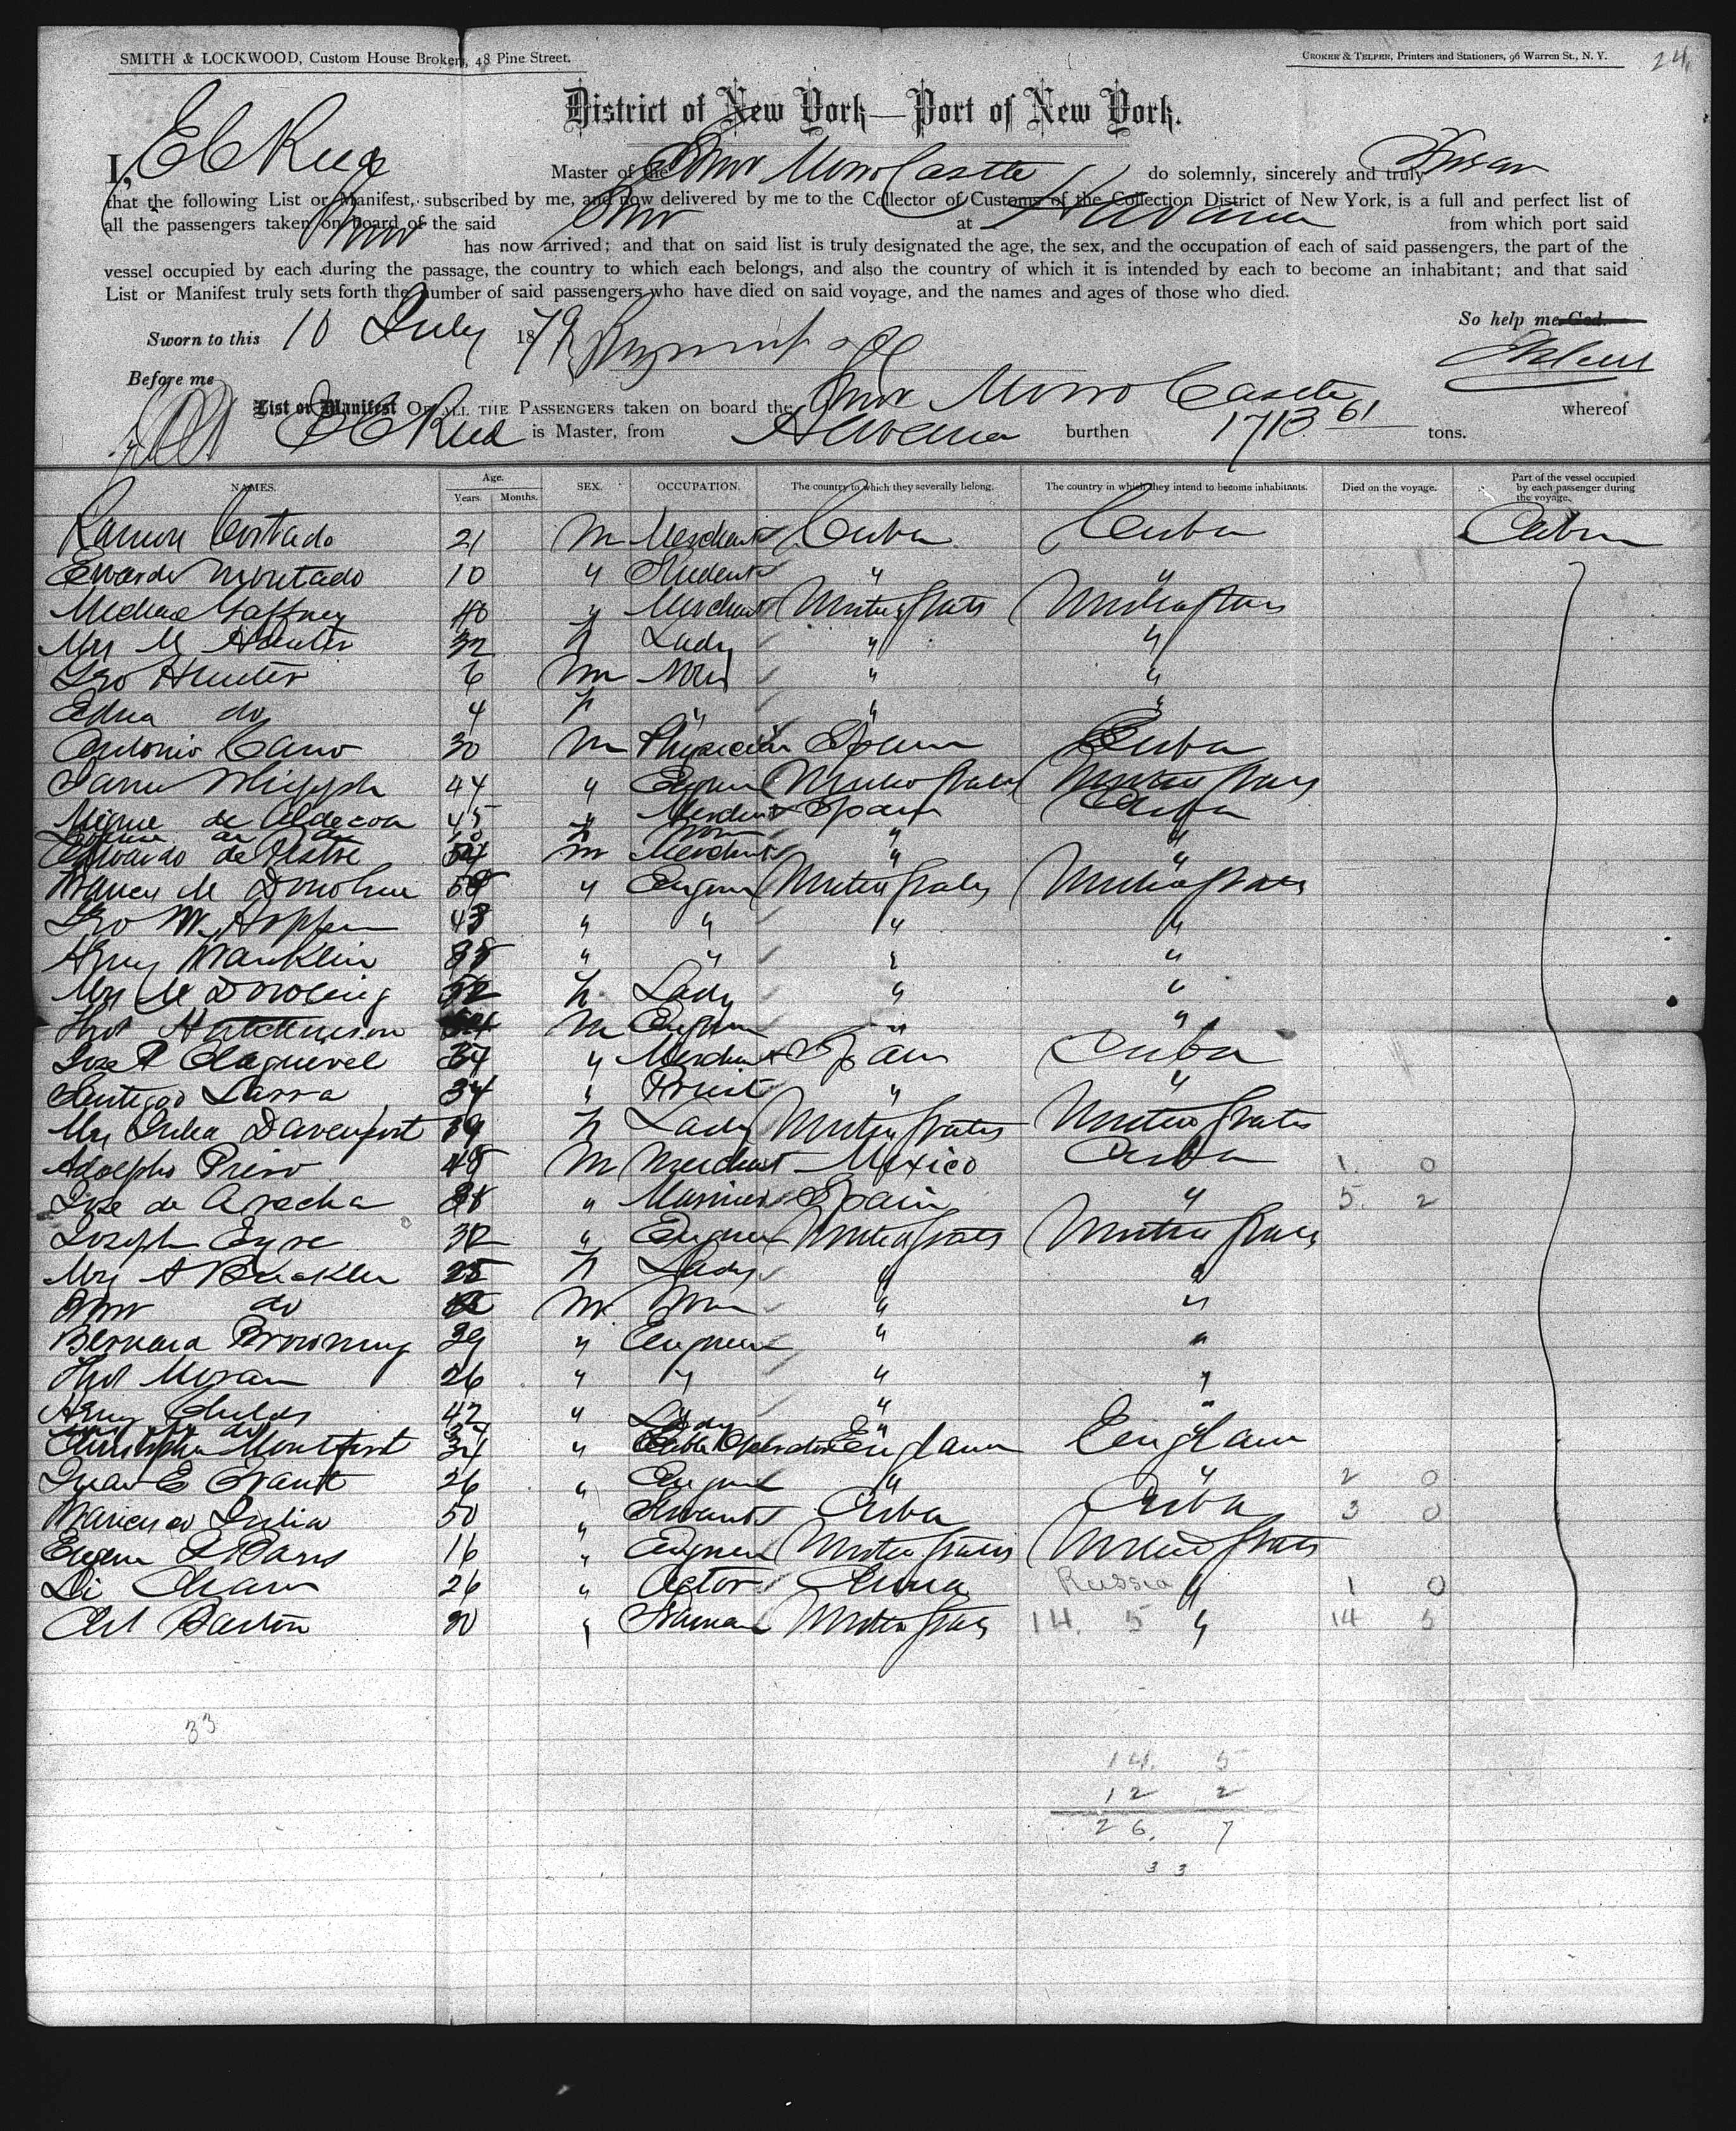 SMITH & LOCKWOOD, Custom House Brokers, 48 Pine Street.
CROKER & TELFER, Printers and Stationers, 96 Warren St., N. Y.
24
District of New York—Port of New York.
I, E C Reed Master of the Stmr Morro Castle do solemnly, sincerely and truly Swear
that the following List or Manifest, subscribed by me, and now delivered by me to the Collector of Customs of the Collection District of New York, is a full and perfect list of
all the passengers taken on board of the said Stmr at Havana from which port said
Stmr has now arrived; and that on said list is truly designated the age, the sex, and the occupation of each of said passengers, the part of the
vessel occupied by each during the passage, the country to which each belongs, and also the country of which it is intended by each to become an inhabitant; and that said
List or Manifest truly sets forth the number of said passengers who have died on said voyage, and the names and ages of those who died.
So help me God.
Sworn to this 10 July 1879
Before me
List or Manifest OF ALL THE PASSENGERS taken on board the Stmr Morro Castle whereof
E C Reed is Master, from Havana burthen 1713 61 tons.
NAMES. Age. Years. Months. SEX. OCCUPATION. The country to which they severally belong. The country in which they intend to become inhabitants. Died on the voyage. Part of the vessel occupied by each passenger during the voyage.
Ramon 21 M Merchant Cuba Cuba Cabin
10 " Student " "
Michael Gaffney 40 " Merchant United States United States
Mrs M Hunter 32 F Lady " "
Geo Hunter 6 M None " "
Edna do 4 F " " "
Antonio Cano 30 M Physician Spain Cuba
44 " Engineer United States United States
de Aldecoa 45 " Merchant Spain Cuba
F None " "
Edwardo de M Merchant " "
Francis M Donohue " Engineer United States United States
Geo W 43 " " " "
Henry Franklin 38 " " " "
Mrs M Dowling 52 F Lady " "
Thos Hutchinson M Engineer " "
Jose R 37 " Merchant Spain Cuba
Santiago Lassa 34 " Priest " "
Mrs Julia Davenport 39 F Lady United States United States
Adolpho Prieo 48 M Merchant Mexico Cuba 1. 0
Jose de Arecha 38 " Mariner Spain " 5. 2
Joseph Eyre 32 " Engineer United States United States
Mrs A Buckler 25 F Lady " "
do M None " "
Bernard Browning 29 " Engineer " "
Thos Moran 26 " " " "
Henry Childs 42 " " " "
do 34 Lady " "
Christopher Montfort 31 " Cable Operator England England
E Grant 26 " Engineer " " 2 0
Francisco Julia 50 " Servant Cuba Cuba 3 0
Eugene 16 " Engineer United States United States
Li Chaw 26 " Actor China Russia " 1 0
Barton 20 " United States 14. 5 " 14 5
33
14. 5
12 2
26. 7
33